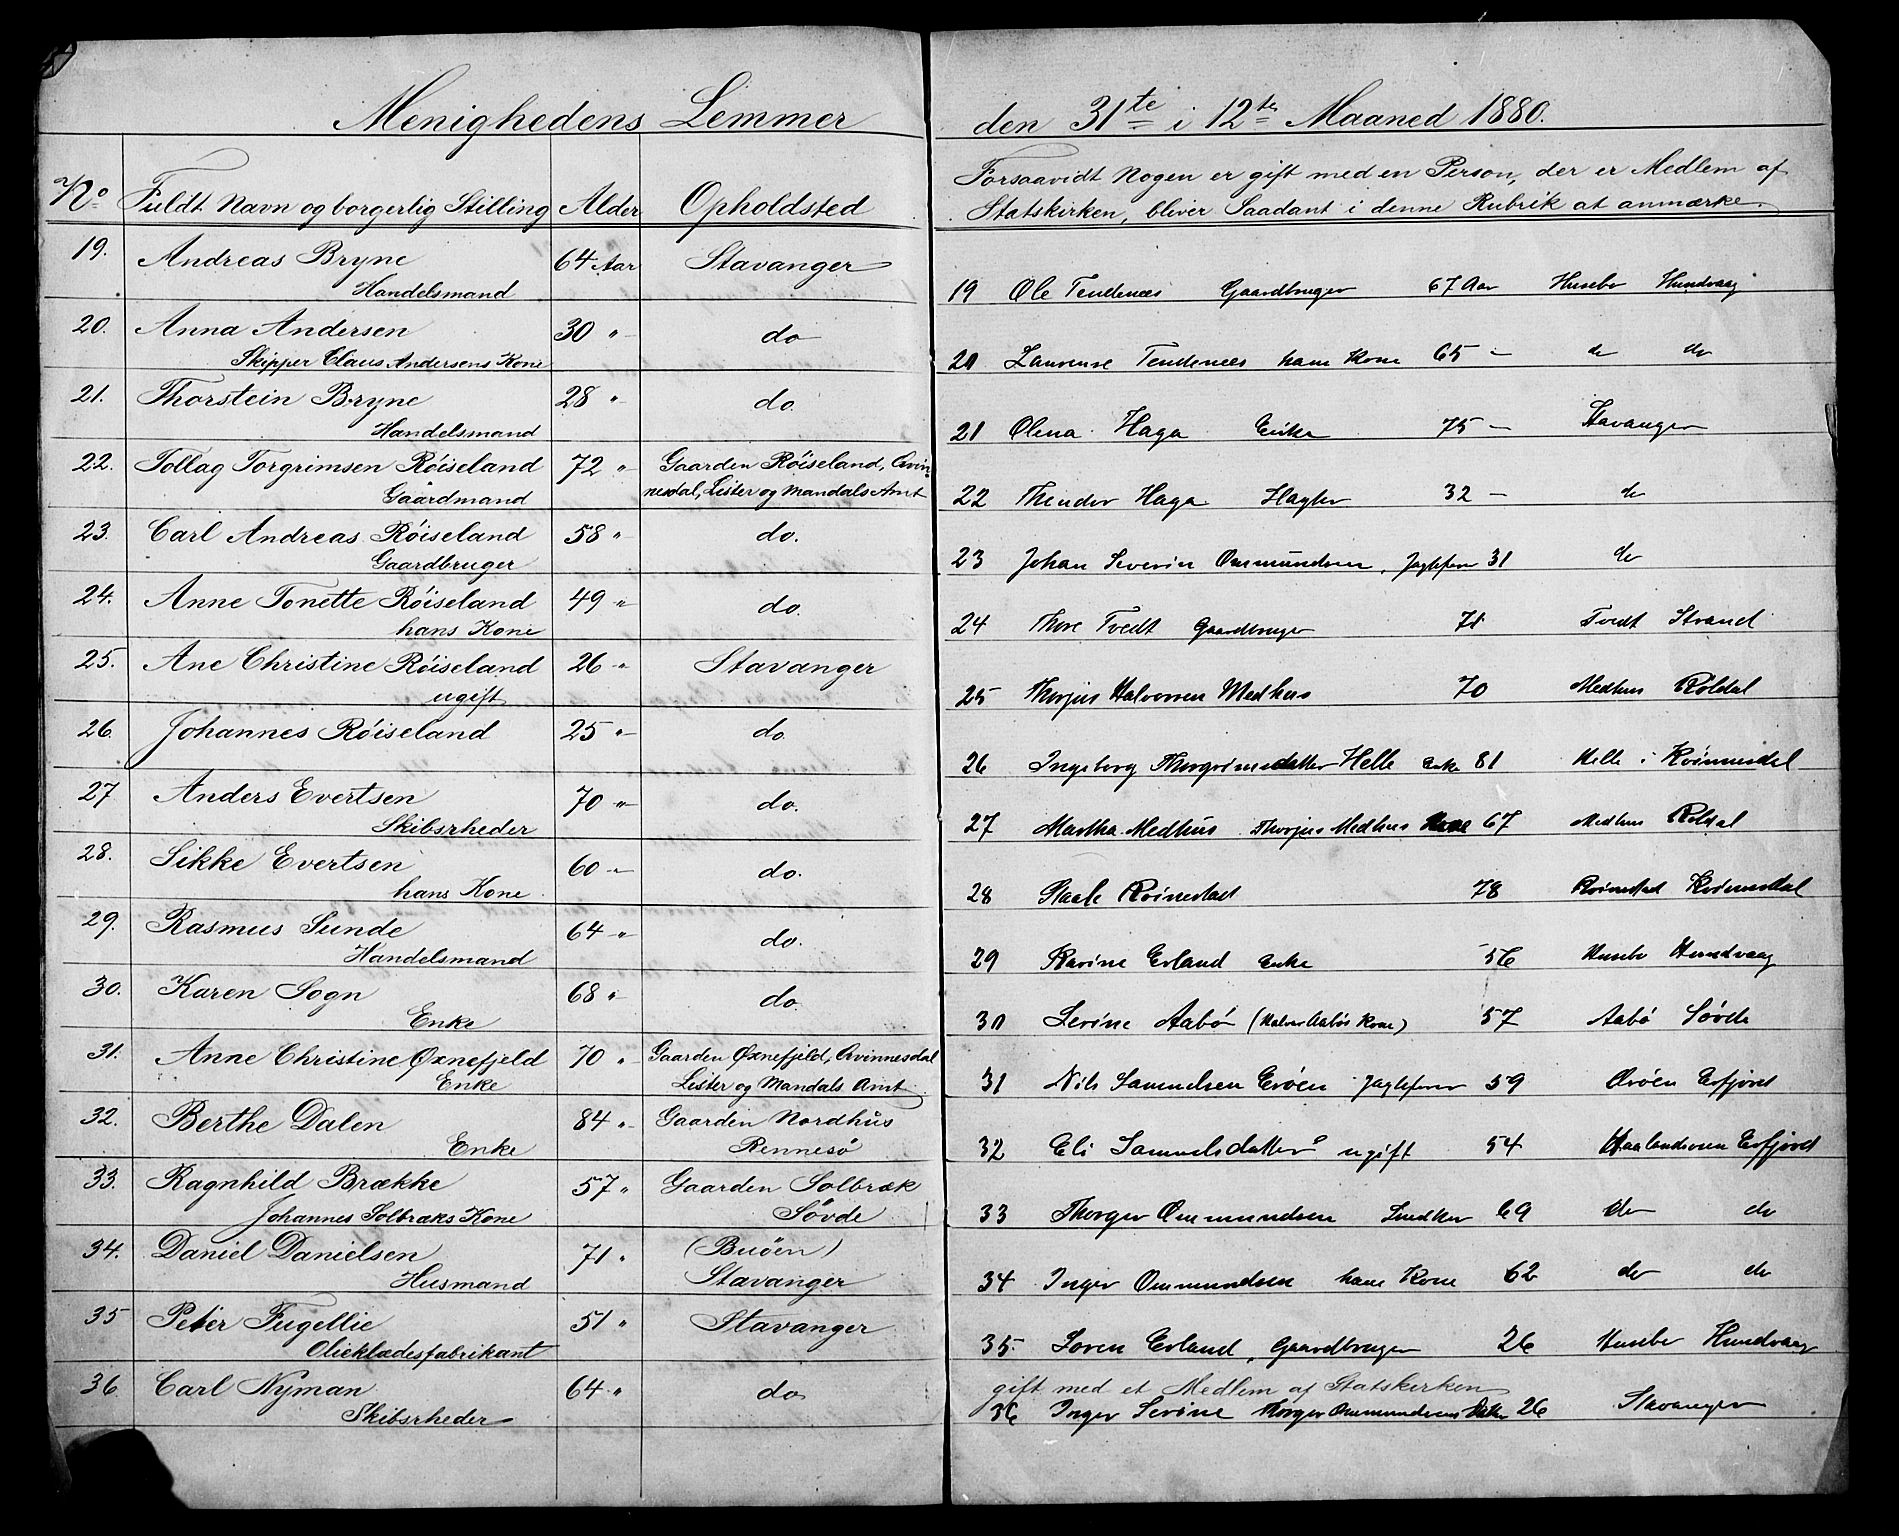 Menighedens Lemmer
No Fuldt Navn og borgerlig Stilling Alder Opholdsted
19. Andreas Bryne 64 Aar Stavanger
Handelsmand
20. Anna Andersen 30 " do
Skipper Claus Andersens Kone
21. Thorstein Bryne 28 " do.
Handelsmand
22. Tollag Torgrimsen Röiseland 72 " Gaarden Röiseland, Qvin-
Gaardmand nesdal, Lister og Mandals Amt
23. Carl Andreas Röiseland 58 " do.
Gaardbruger
24. Anne Tonette Röiseland 49 " do.
hans Kone
25. Ane Christine Röiseland 26 " Stavanger
ugift
26. Johannes Röiseland 25 " do.
27 Anders Evertsen 70 " do.
Skibsrheder
28. Sikke Evertsen 60 " do.
hans Kone
29. Rasmus Sunde 64 " do.
Handelsmand
30. Karen Sogn 68 " do.
Enke
31. Anne Christine Öxnefjeld 70 " Gaarden Öxnefjeld, Qvinnesdal
Enke Lister og Mandals Amt
32. Berthe Dalen 84 " Gaarden Nordhus
Enke Rennesö
33. Ragnhild Brække 57 " Gaarden Solbræk
Johannes Solbræks Kone Sövde
34. Daniel Danielsen 71 " (Buöen)
Husmand Stavanger
35 Peter Fugellie 51 " Stavanger
Olieklædesfabrikant
36. Carl Nyman 64 " do
Skibsrheder
den 31te i 12te Maaned 1880.
Forsaavidt Nogen er gift med en Person, der er Medlem af
Statskirken, bliver Saadant i denne Rubrik at anmærke.
19 Ole Tendenæs Gaardbruger 67 Aar Husebø Hundvaag
20 Laurense Tendenæs hans Kone 65 - do do
21 Olena Haga Enke 75 - Stavanger
22 Theodor Haga 32 - do
23 Johan Severin Ommundsen, 31 do
24 Thore Tvedt Gaardbruger 71 Tvedt Strand
25 Thorjus Halvorsen Medhus 70 Medhus Röldal
26 Ingeborg Thorgrimsdatter Helle Enke 81 Helle i Kvinnesdal
27 Martha Medhus Thorjus Medhus Kone 67 Medhus Röldal
28 Staale Kvinestad 78 Kvinestad Kvinnesdal
29 Karine Erland Enke 56 Husebø Hundvaag
30 Serine Aabö (Halvor Aabös Kone) 57 Aabö Sövde
31 Nils Samuelsen 59 Erfjord
32 Eli Samuelsdatter ugift 54 Erfjord
33 Thorger Ommundsen Snedker 69 do do
34 Inger Ommundsen hans Kone 62 do do
35. Soren Erland, Gaardbruger 26 Husebø Hundvaag
gift med et Medlem af Statskirken
36 Inger Serine Thorger Ommundsens Datter 26 Stavanger